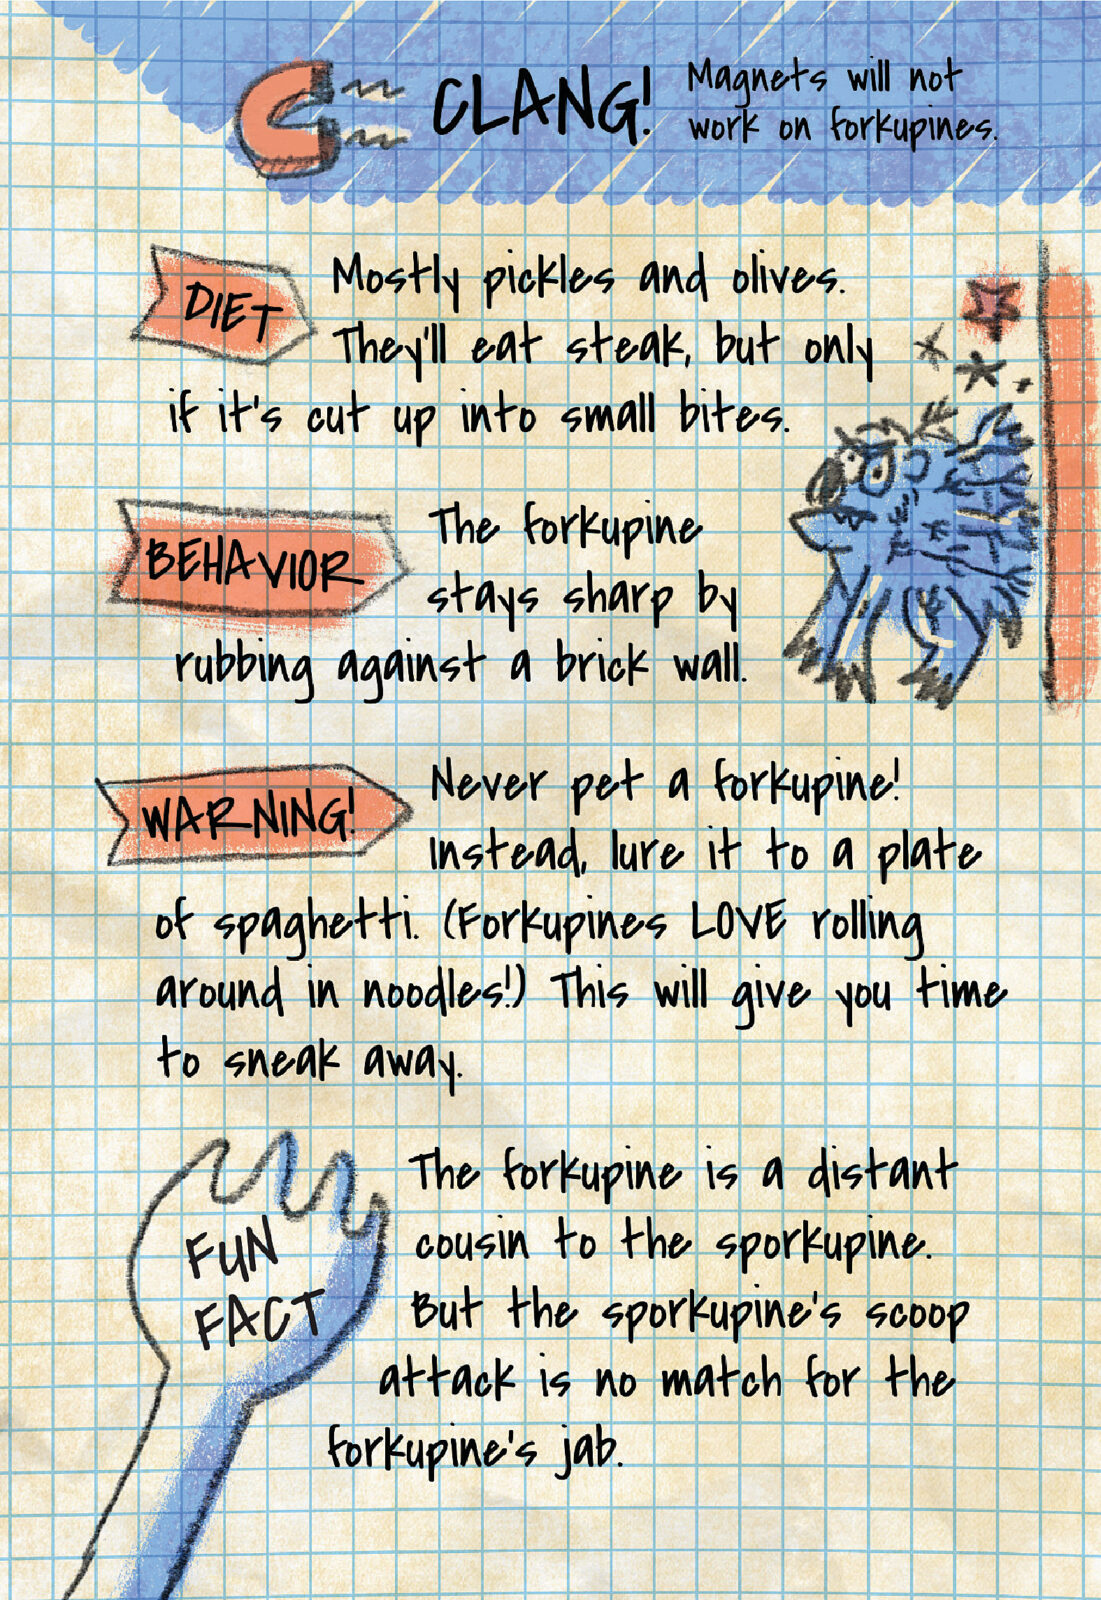 CLANG!
Magnets will not
work on forkupines.
DIET
Mostly pickles and olives.
They'll eat steak, but only
if it's cut up into small bites.
BEHAVIOR
The forkupine
stays sharp by
rubbing against a brick wall.
WARNING!
Never pet a forkupine!
Instead, lure it to a plate
of spaghetti. (Forkupines LOVE rolling
around in noodles!) This will give you time
to sneak away.
FUN
FACT
The forkupine is a distant
cousin to the sporkupine.
But the sporkupine's scoop
attack is no match for the
forkupine's jab.